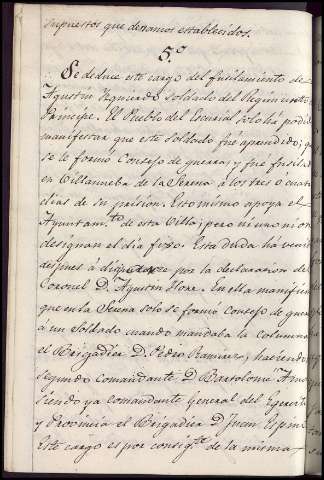 supuestos que denamos establecidos.
5.º
Se deduce este cargo del fusilamiento de
Agustin Izquierdo soldado del Regimiento
Principe. El Pueblo del Escurial solo há podido
manifestar que este soldado fué aprendido; que
se le formó Consejo de guerra, y fué fusilado
en Villanueba de la Serena á los tres ó cuatro
dias de su prision. Esto mismo apoya el
Ayuntam.to de esta Villa; pero ni uno ni otro
designan el dia fixo. Esta duda há venido
despues á disiparse por la declaracion del
Coronel D. Agustin Flore. En ella manifiesta
que en la Serena solo se formó Consejo de guerra
á un Soldado cuando mandaba la columna
el Brigadier D. Pedro Ramirez, haciendo
segundo comandante D. Bartolomé
siendo ya comandante General del Egercito
y Provincia el Brigadier D. Juan Espin
Este cargo es por consig.te de la misma